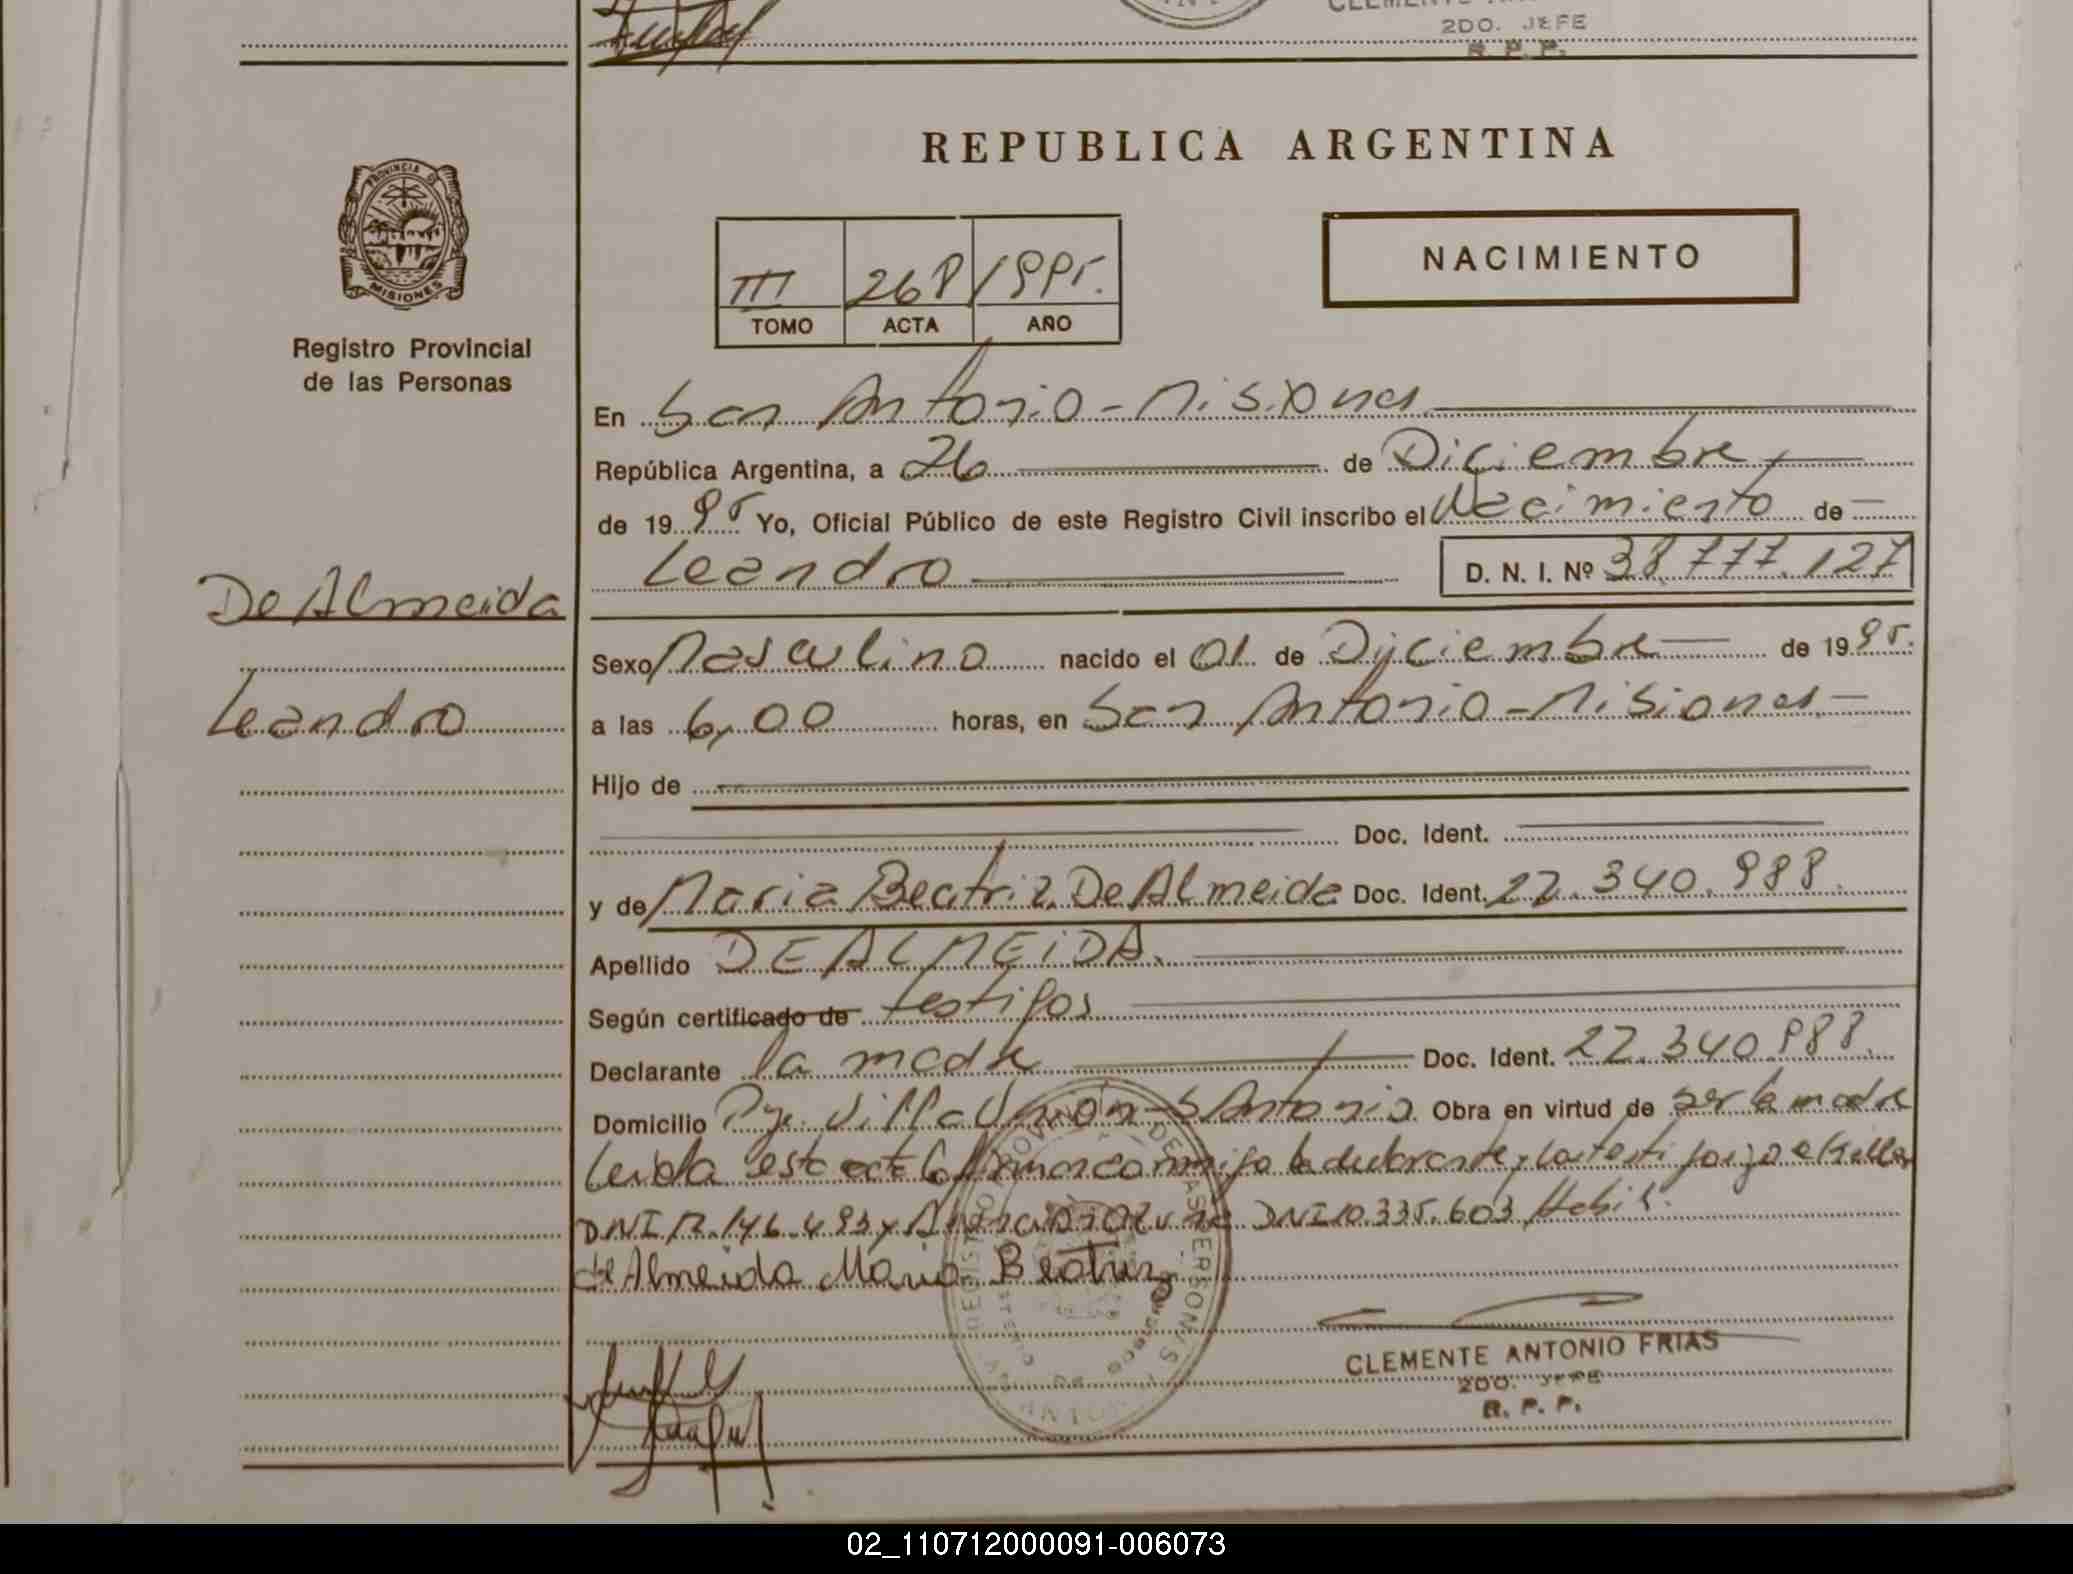 2DO. JEFE
R. P. P.
REPUBLICA ARGENTINA
PROVINCIA DE
MISIONES
Registro Provincial
de las Personas
NACIMIENTO
III 268 1995.
TOMO ACTA AÑO
En San Antonio - Misiones
República Argentina, a 26 de Diciembre
de 1995 Yo, Oficial Público de este Registro Civil inscribo el Nacimiento de
Leandro D. N. I. Nº 38.777.127
De Almeida
Leandro
Sexo Masculino nacido el 01 de Diciembre de 1995.
a las 6,00 horas, en San Antonio - Misiones
Hijo de
Doc. Ident.
y de Maria Beatriz De Almeida Doc. Ident. 22.340.988.
Apellido DE ALMEIDA.
Según certificado de testigos
Declarante la madre Doc. Ident. 22.340.988.
Domicilio Pje. Villa Union - S Antonio. Obra en virtud de ser la madre
Leida este acta la firman conmigo la declarante y los testigos
DNI 17.146.493 y DNI 10.335.603
de Almeida Maria Beatriz
CLEMENTE ANTONIO FRIAS
2DO. JEFE
R. P. P.
02_110712000091-006073